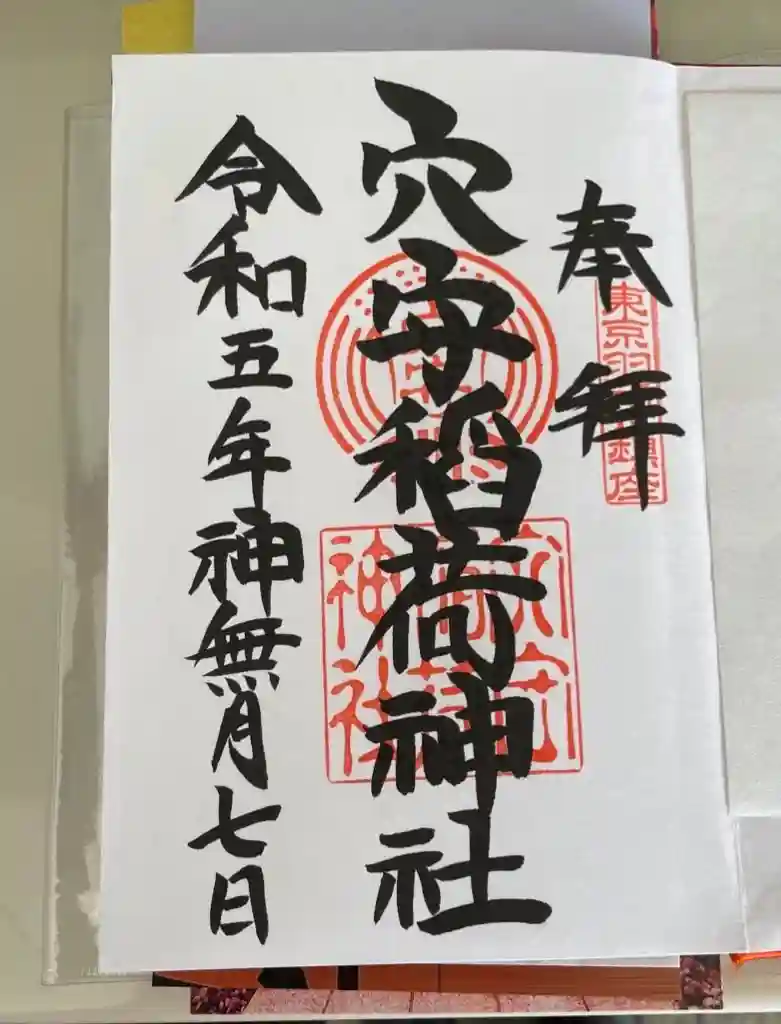 奉拝
東京羽 鎮座
穴守稲荷神社
穴守稲荷神社
令和五年神無月七日